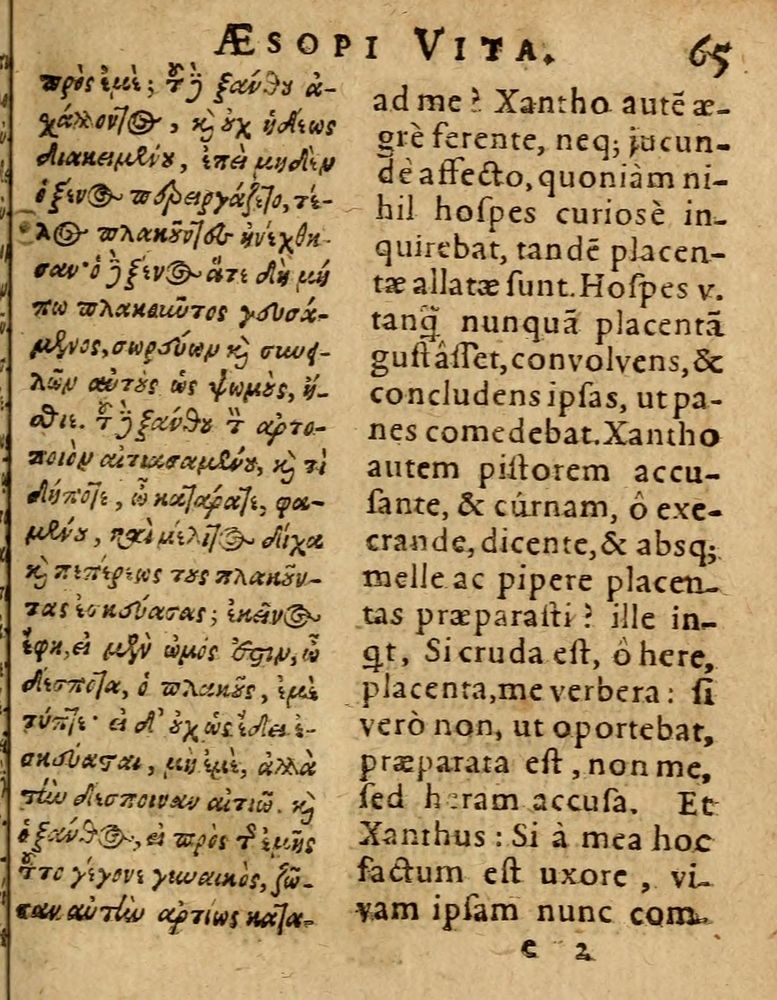 ÆSOPI VITA. 65
πρὸς ἐμέ; τοῦ δὲ ξάνθου ἀ-
χάλλοντος, καὶ οὐχ ἡδέως
διακειμένου, ἐπεὶ μηδὲν
ὁ ξένος περιειργάζετο, τέ-
λος πλακοῦντες ἠνέχθη-
σαν· ὁ δὲ ξένος ἅτε δὴ μή
πω πλακοῦντος γευσά-
μενος, σωρεύων καὶ συνει-
λῶν αὐτοὺς ὡς ψωμοὺς, ἤ-
σθιε. τοῦ δὲ ξάνθου τὸν ἀρτο-
ποιὸν αἰτιασαμένου, καὶ τί
δήποτε, ὦ κατάρατε, φα-
μένου, καὶ μέλιτος δίχα
καὶ πεπέρεως τοὺς πλακοῦν-
τας ἐσκεύασας; ἐκεῖνος
ἔφη, εἰ μὲν ὠμός ἐστιν, ὦ
δέσποτα, ὁ πλακοῦς, ἐμὲ
τύπτε· εἰ δ' οὐχ ὡς ἔδει ἐ-
σκεύασται, μὴ ἐμὲ, ἀλλὰ
τὴν δέσποιναν αἰτιῶ. καὶ
ὁ ξάνθος, εἰ πρὸς τῆς ἐμῆς
τοῦτο γέγονε γυναικὸς, ζῶ-
σαν αὐτὴν ἀρτίως κατα-
ad me? Xantho autẽ æ-
grè ferente, neq; jucun-
dè affecto, quoniàm ni-
hil hoſpes curiosè in-
quirebat, tandẽ placen-
tæ allatæ ſunt. Hoſpes v.
tanq̃ nunquã placentã
guſtâſſet, convolvens, &
concludens ipſas, ut pa-
nes comedebat. Xantho
autem piſtorem accu-
ſante, & cúrnam, ô exe-
crande, dicente, & absq;
melle ac pipere placen-
tas præparaſti? ille in-
qt, Si cruda eſt, ô here,
placenta, me verbera: ſi
verò non, ut oportebat,
præparata eſt, non me,
ſed heram accuſa. Et
Xanthus: Si à mea hoc
factum eſt uxore, vi-
vam ipſam nunc com-
e 2